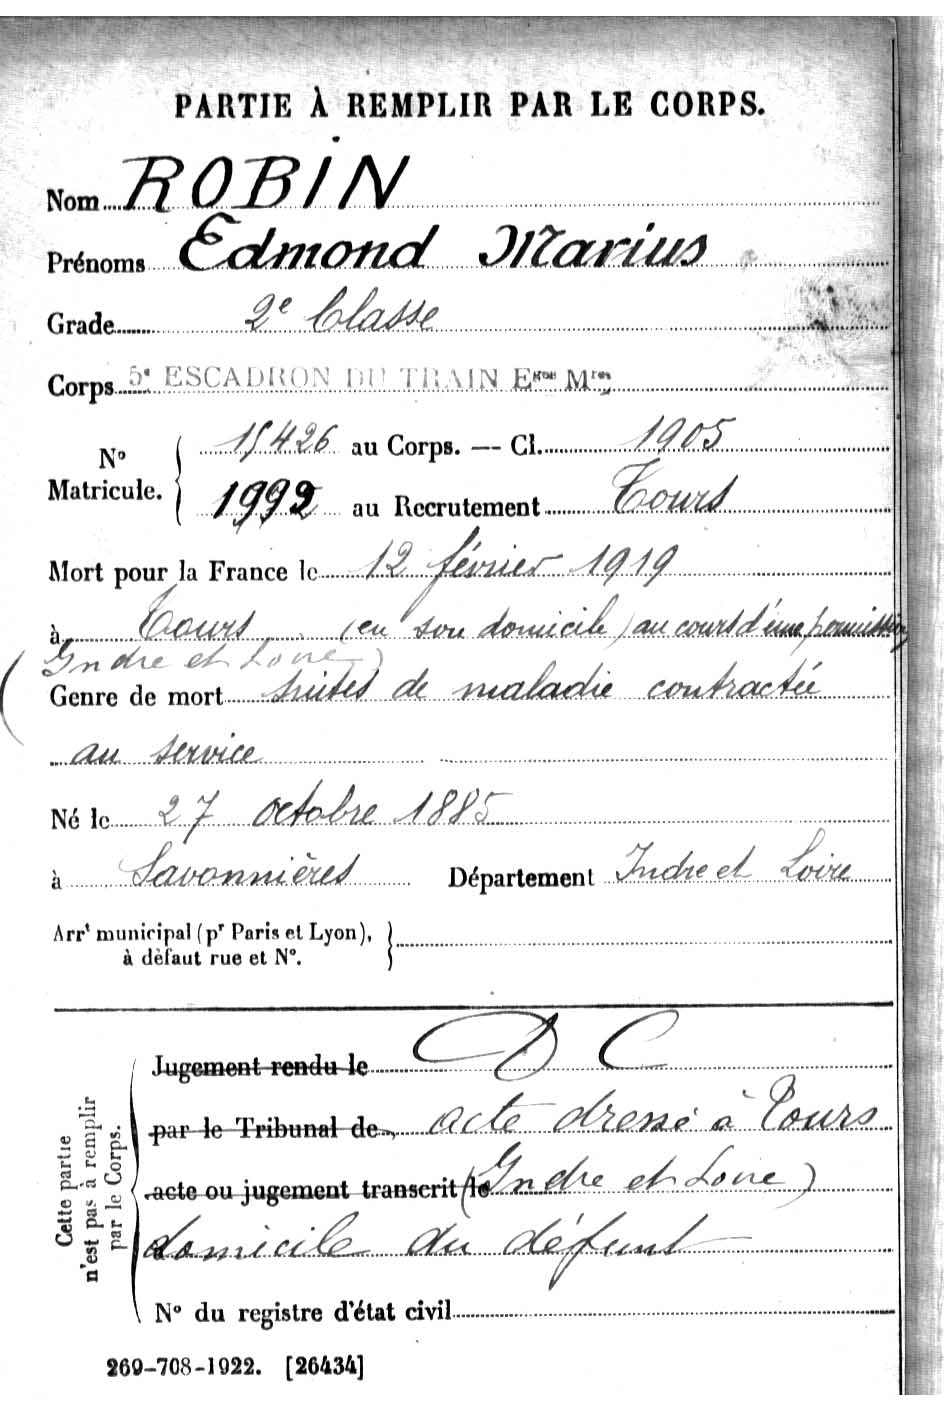 PARTIE À REMPLIR PAR LE CORPS.
Nom ROBIN
Prénoms Edmond Marius
Grade 2e Classe
Corps 5e ESCADRON DU TRAIN Eges Mres
N° Matricule. { 15426 au Corps. — Cl. 1905
1992 au Recrutement Tours
Mort pour la France le 12 février 1919
à Tours (en son domicile) au cours d'une permission
(Indre et Loire)
Genre de mort suites de maladie contractée
au service
Né le 27 octobre 1885
à Savonnières Département Indre et Loire
Arrt municipal (pr Paris et Lyon), à défaut rue et N°. }
Cette partie n'est pas à remplir par le Corps.
Jugement rendu le D C
par le Tribunal de acte dressé à Tours
acte ou jugement transcrit le (Indre et Loire)
domicile du défunt
N° du registre d'état civil
269-708-1922. [26434]